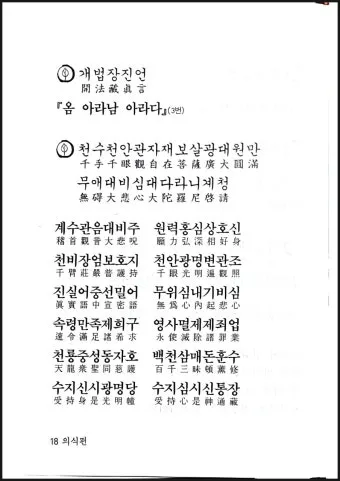 개법장진언
開法藏眞言
『옴 아라남 아라다』(3번)
천수천안관자재보살광대원만
千手千眼觀自在菩薩廣大圓滿
무애대비심대다라니제청
無礙大悲心大陀羅尼啓請
계수관음대비주 원력홍심상호신
稽首觀音大悲呪 願力弘深相好身
천비장엄보호지 천안광명변관조
千臂莊嚴普護持 千眼光明遍觀照
진실어중선밀어 무위심내기비심
眞實語中宣密語 無爲心內起悲心
속령만족제희구 영사멸제제죄업
速令滿足諸希求 永使滅除諸罪業
천룡중성동자호 백천삼매돈훈수
天龍衆聖同慈護 百千三昧頓薰修
수지신시광명당 수지심시신통장
受持身是光明幢 受持心是神通藏
18 의식편